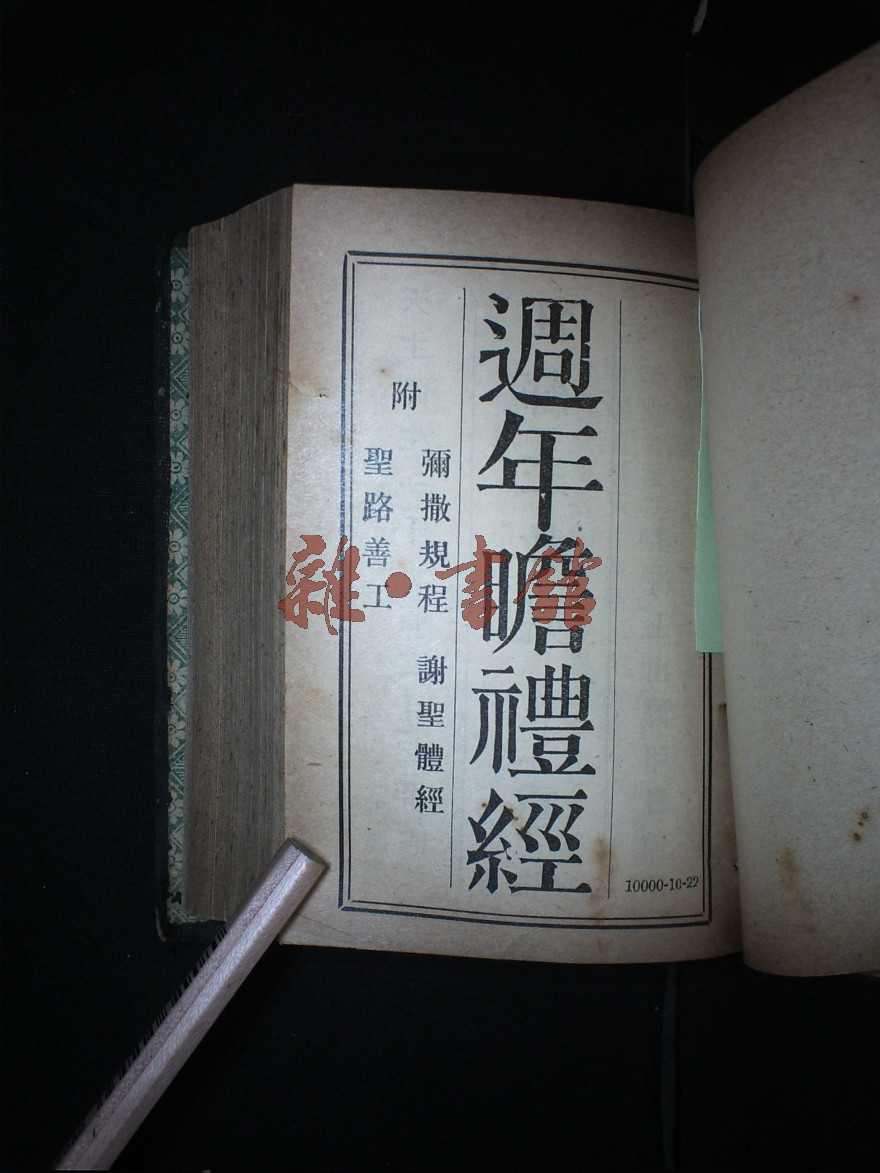 週年瞻禮經
附
彌撒規程 謝聖體經
聖路善工
10000-10-22
雜·書館